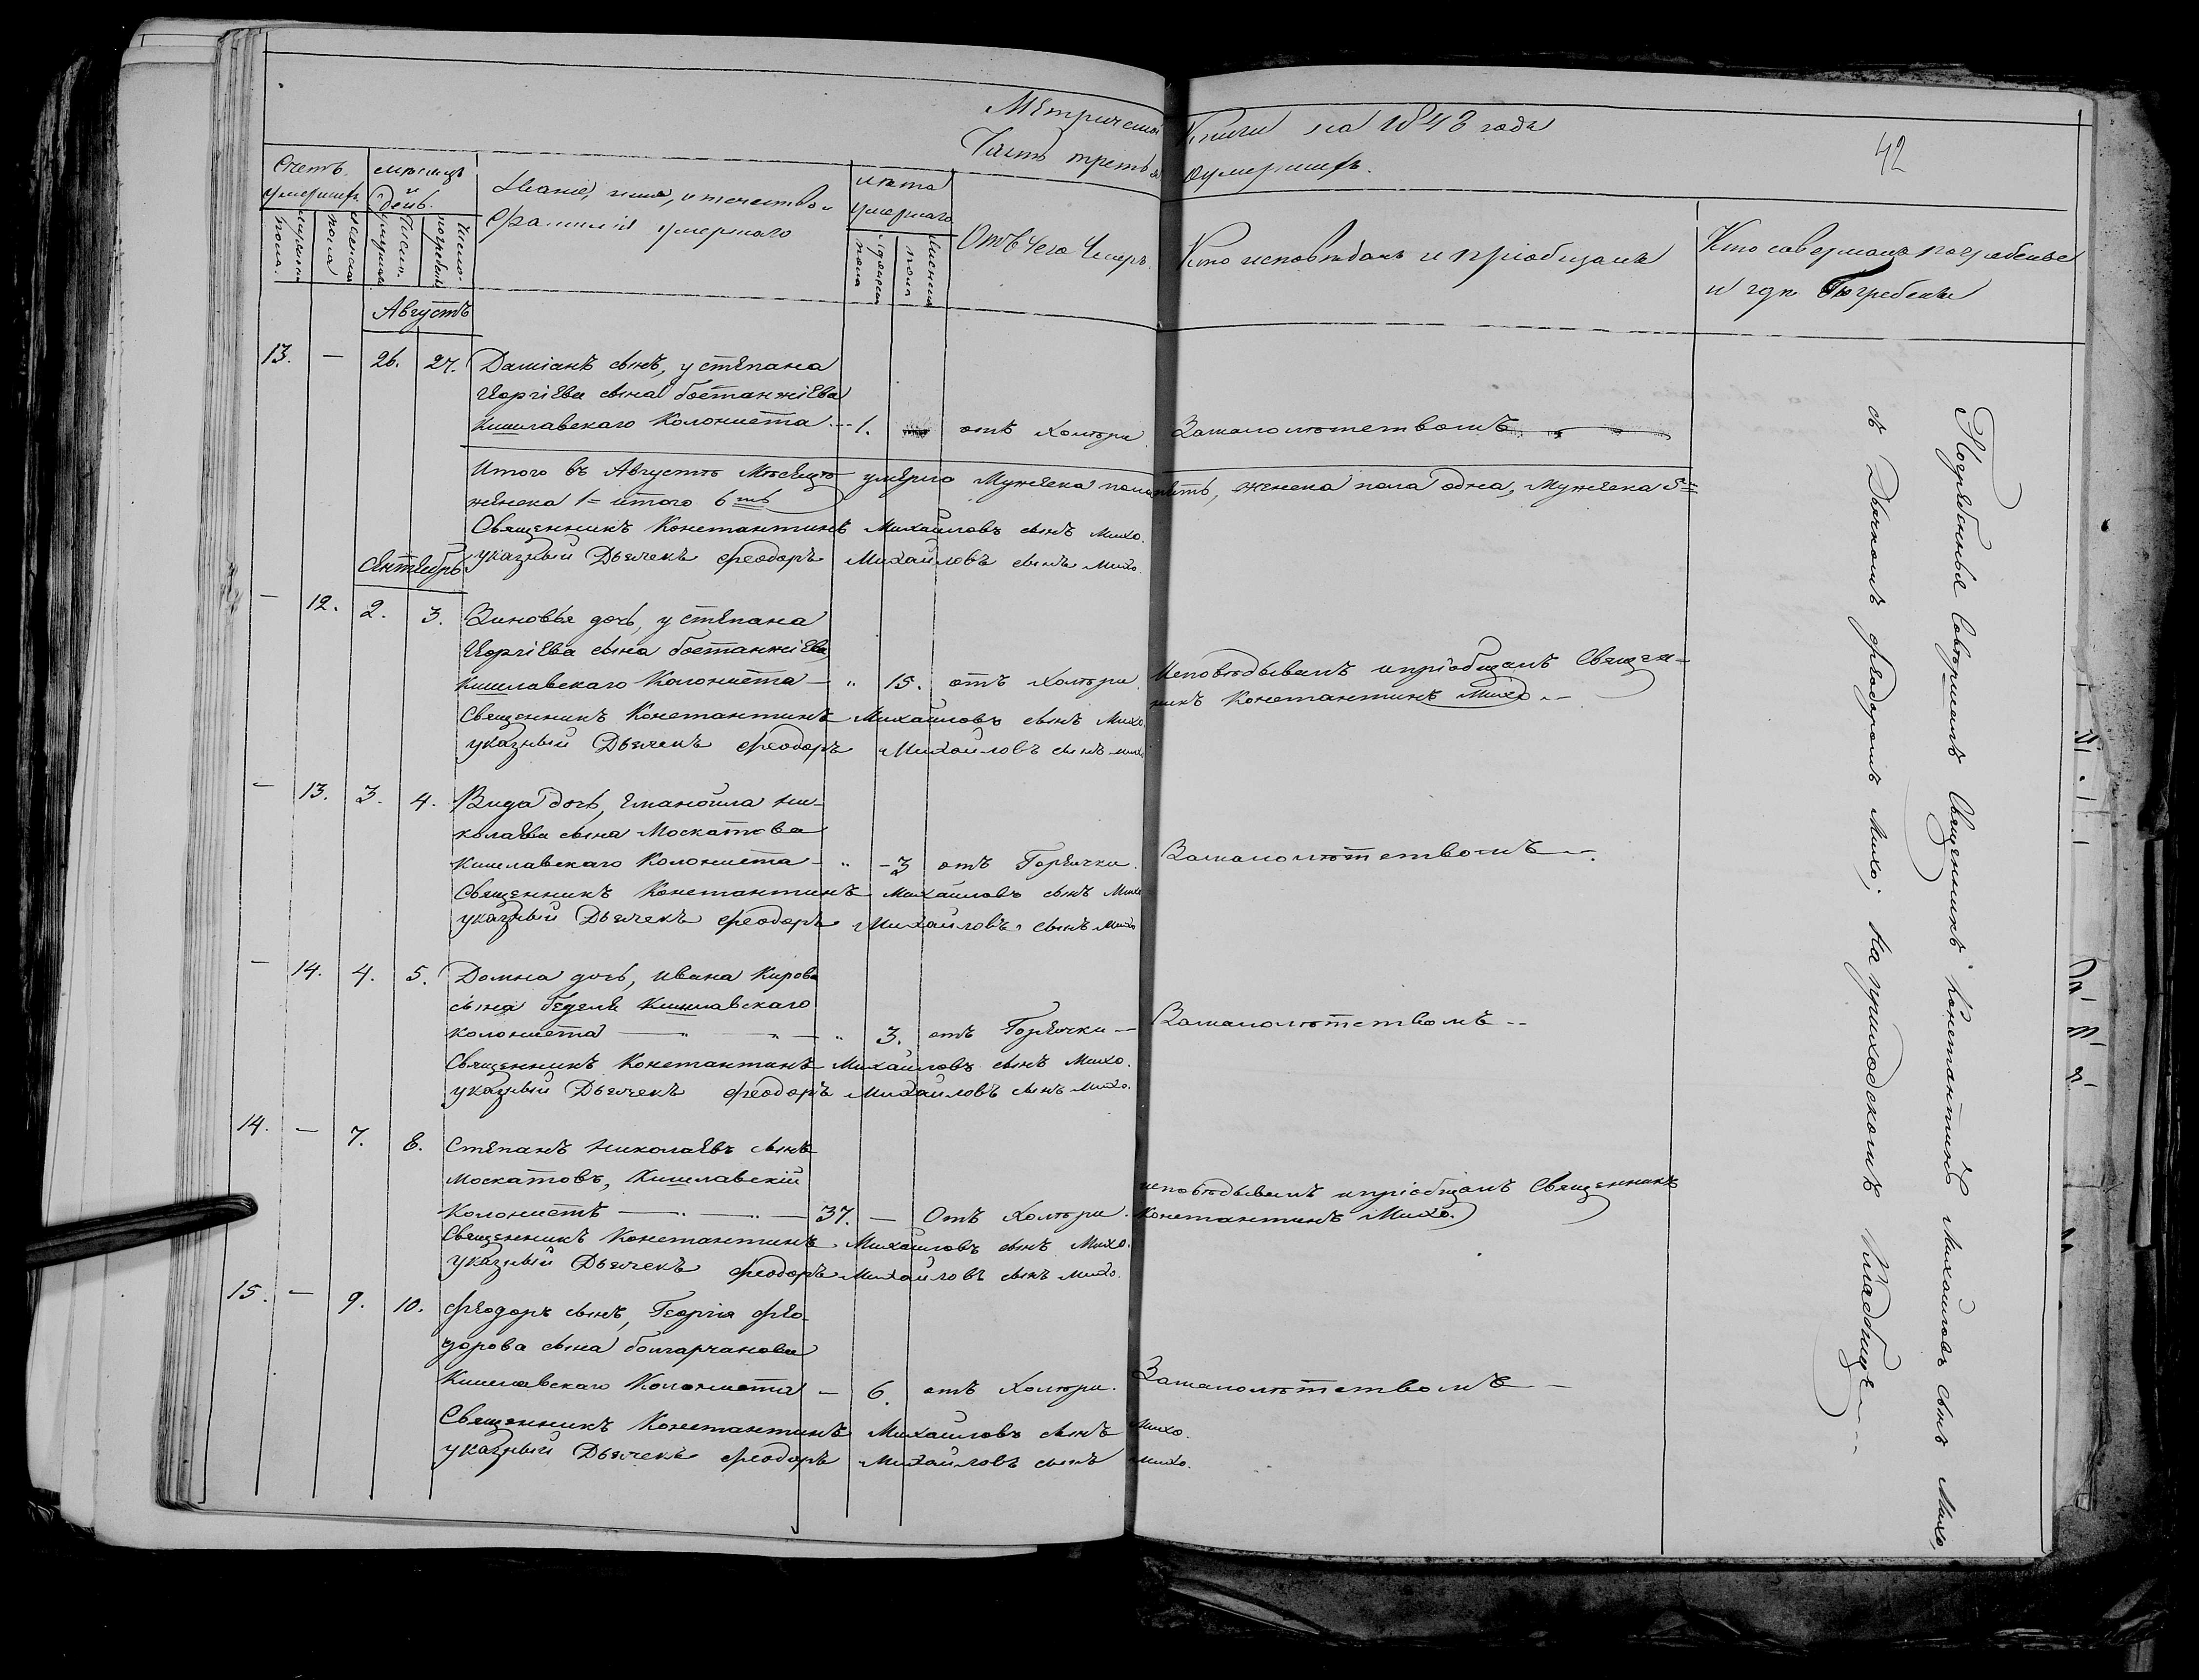 Метрической Книги на 1848 года
Часть третья о умершихъ.
42
Счетъ умершихъ
мужеска пола
женска пола
мѣсяцъ и день.
Число умершихъ
Число погребенiя
Званiе, имя, отчество и
Фамилiя умершаго
Лѣта умершаго
мужеска пола
женска пола
Отъ Чего Умеръ.
Кто исповѣдалъ и прiобщалъ
Кто совершалъ погребенiе
и гдѣ Погребены
Августъ
13. — 26. 27. Дамiанъ сынъ, у стѣпана
Георгiева сына бостанжiева
Кишлавскаго Колониста — 1. отъ Холѣри Замалолѣтетвомъ
Итого въ Августѣ Мѣсецѣ умѣрло Мужеска пола пять, женска пола одна, Мужеска 5=
женска 1= итого 6ть
Священникъ Константинъ Михайловъ сынъ Михо.
указный Дьячекъ феодоръ Михайловъ сынъ Михо.
Сѣнтѣбръ
— 12. 2. 3. Зиновья дочь, у стѣпана
Георгiева сына бостанжiева
Кишлавскаго Колониста — „ 15. отъ Холѣри Исповѣдывалъ и прiобщалъ Священ-
никъ Константинъ Михо —
Священникъ Константинъ Михайловъ сынъ Михо
указный Дьячекъ феодоръ Михайловъ сынъ михо
— 13. 3. 4. Вида дочь, Еманоила Ни-
колаева сына Москатова
Кишлавскаго Колониста — „ — 3 отъ Горѣчки. Замалолѣтетвомъ —
Священникъ Константинъ Михайловъ сынъ Михо
указный Дьячекъ феодоръ Михайловъ сынъ Михо
— 14. 4. 5. Домна дочь, ивана Кирова
сына беделѣ Кишлавскаго
колониста — „ 3. отъ Горѣчки — Замалолѣтетвомъ --
Священникъ Константинъ Михайловъ сынъ Михо.
указный Дьячекъ феодоръ Михайловъ сынъ Михо.
14. — 7. 8. Стѣпанъ Николаѣвъ сынъ
Москатовъ, Кишлавскiй
Колонистъ — 37. — Отъ Холѣри. исповѣдывалъ и прiобщалъ Священникъ
Константинъ Михо.
Священникъ Константинъ Михайловъ сынъ Михо.
Указный Дьячекъ феодоръ Михайловъ сынъ Михо.
15. — 9. 10. феодоръ сынъ, Георгiя фео-
дорова сына болгарчанова
Кишлавскаго Колониста — 6. отъ Холѣри. Замалолѣтетвомъ —
Священникъ Константинъ Михайловъ сынъ Михо.
указный Дьячекъ феодоръ Михайловъ сынъ Михо.
Погребѣнiѣ Совѣршалъ Священникъ Константинъ Михайловъ сынъ Михо,
съ Дьячкомъ феодоромъ Михо; На приходскомъ Кладбищѣ —